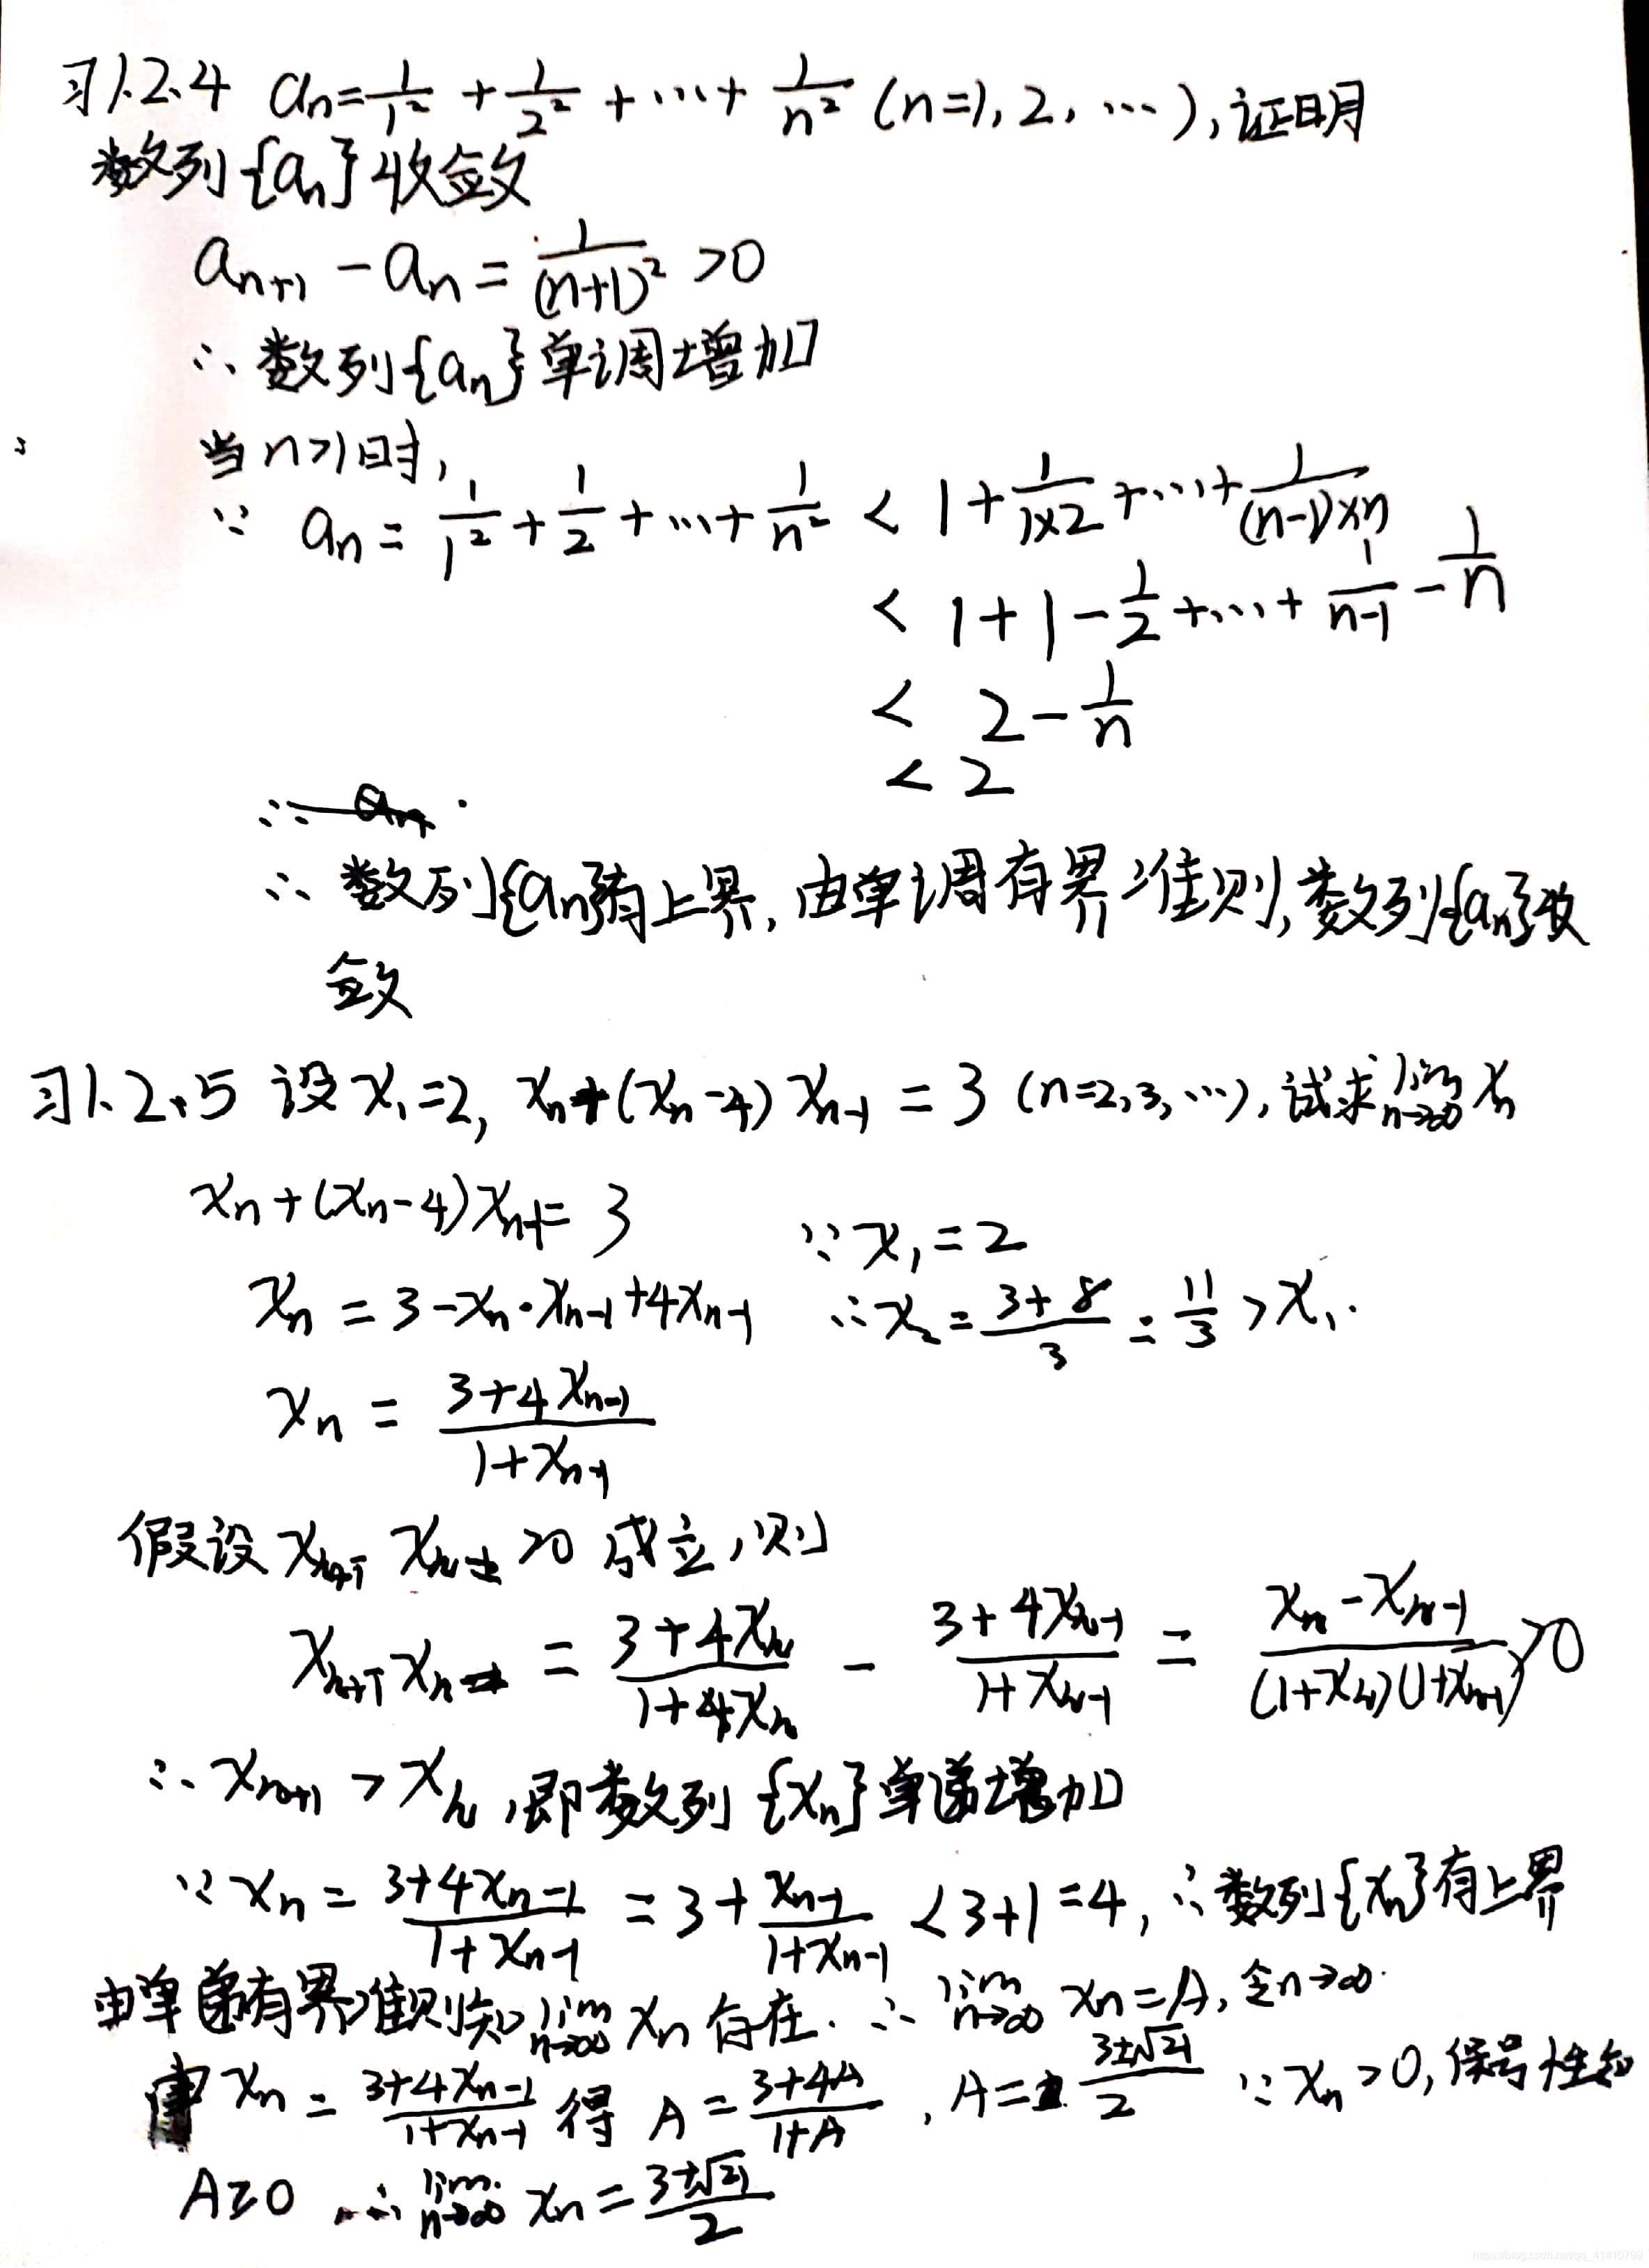 习1.2.4 aₙ=1/1² + 1/2² + ⋯ + 1/n² (n=1, 2, ⋯), 证明
数列{aₙ}收敛
aₙ₊₁ - aₙ = 1/(n+1)² >0
∴ 数列{aₙ}单调增加
当n>1时,
∵ aₙ = 1/1² + 1/2 + ⋯ + 1/n² < 1 + 1/(1×2) + ⋯ + 1/((n-1)×n)
< 1 + 1 - 1/2 + ⋯ + 1/(n-1) - 1/n
< 2 - 1/n
< 2
∴
∴ 数列{aₙ}有上界, 由单调有界准则, 数列{aₙ}收
敛
习1.2.5 设x₁=2, xₙ+(xₙ-4)xₙ₋₁ = 3 (n=2,3,⋯), 试求lim n→∞ xₙ
xₙ+(xₙ-4)xₙ₋₁= 3 ∵ x₁ = 2
xₙ = 3-xₙ·xₙ₋₁+4xₙ₋₁ ∴ x₂ = (3+8)/3 = 11/3 > x₁.
xₙ = (3+4xₙ₋₁)/(1+xₙ₋₁)
假设 >0 成立, 则
xₙ₊₁-xₙ = (3+4xₙ)/(1+4xₙ) - (3+4xₙ₋₁)/(1+xₙ₋₁) = (xₙ-xₙ₋₁)/((1+xₙ)(1+xₙ₋₁)) >0
∴ xₙ₊₁ > xₙ, 即数列{xₙ}单递增加
∵ xₙ = (3+4xₙ₋₁)/(1+xₙ₋₁) = 3 + xₙ₋₁/(1+xₙ₋₁) < 3+1 = 4, ∴ 数列{xₙ}有上界
由单调有界准则知 lim n→∞ xₙ 存在. ∴ lim n→∞ xₙ = A, 令n→∞.
由 xₙ = (3+4xₙ₋₁)/(1+xₙ₋₁) 得 A = (3+4A)/(1+A), A = (3±√21)/2 ∵ xₙ >0, 保号性知
A≥0 ∴ lim n→∞ xₙ = (3+√21)/2
https://blog.csdn.net/qq_41410799